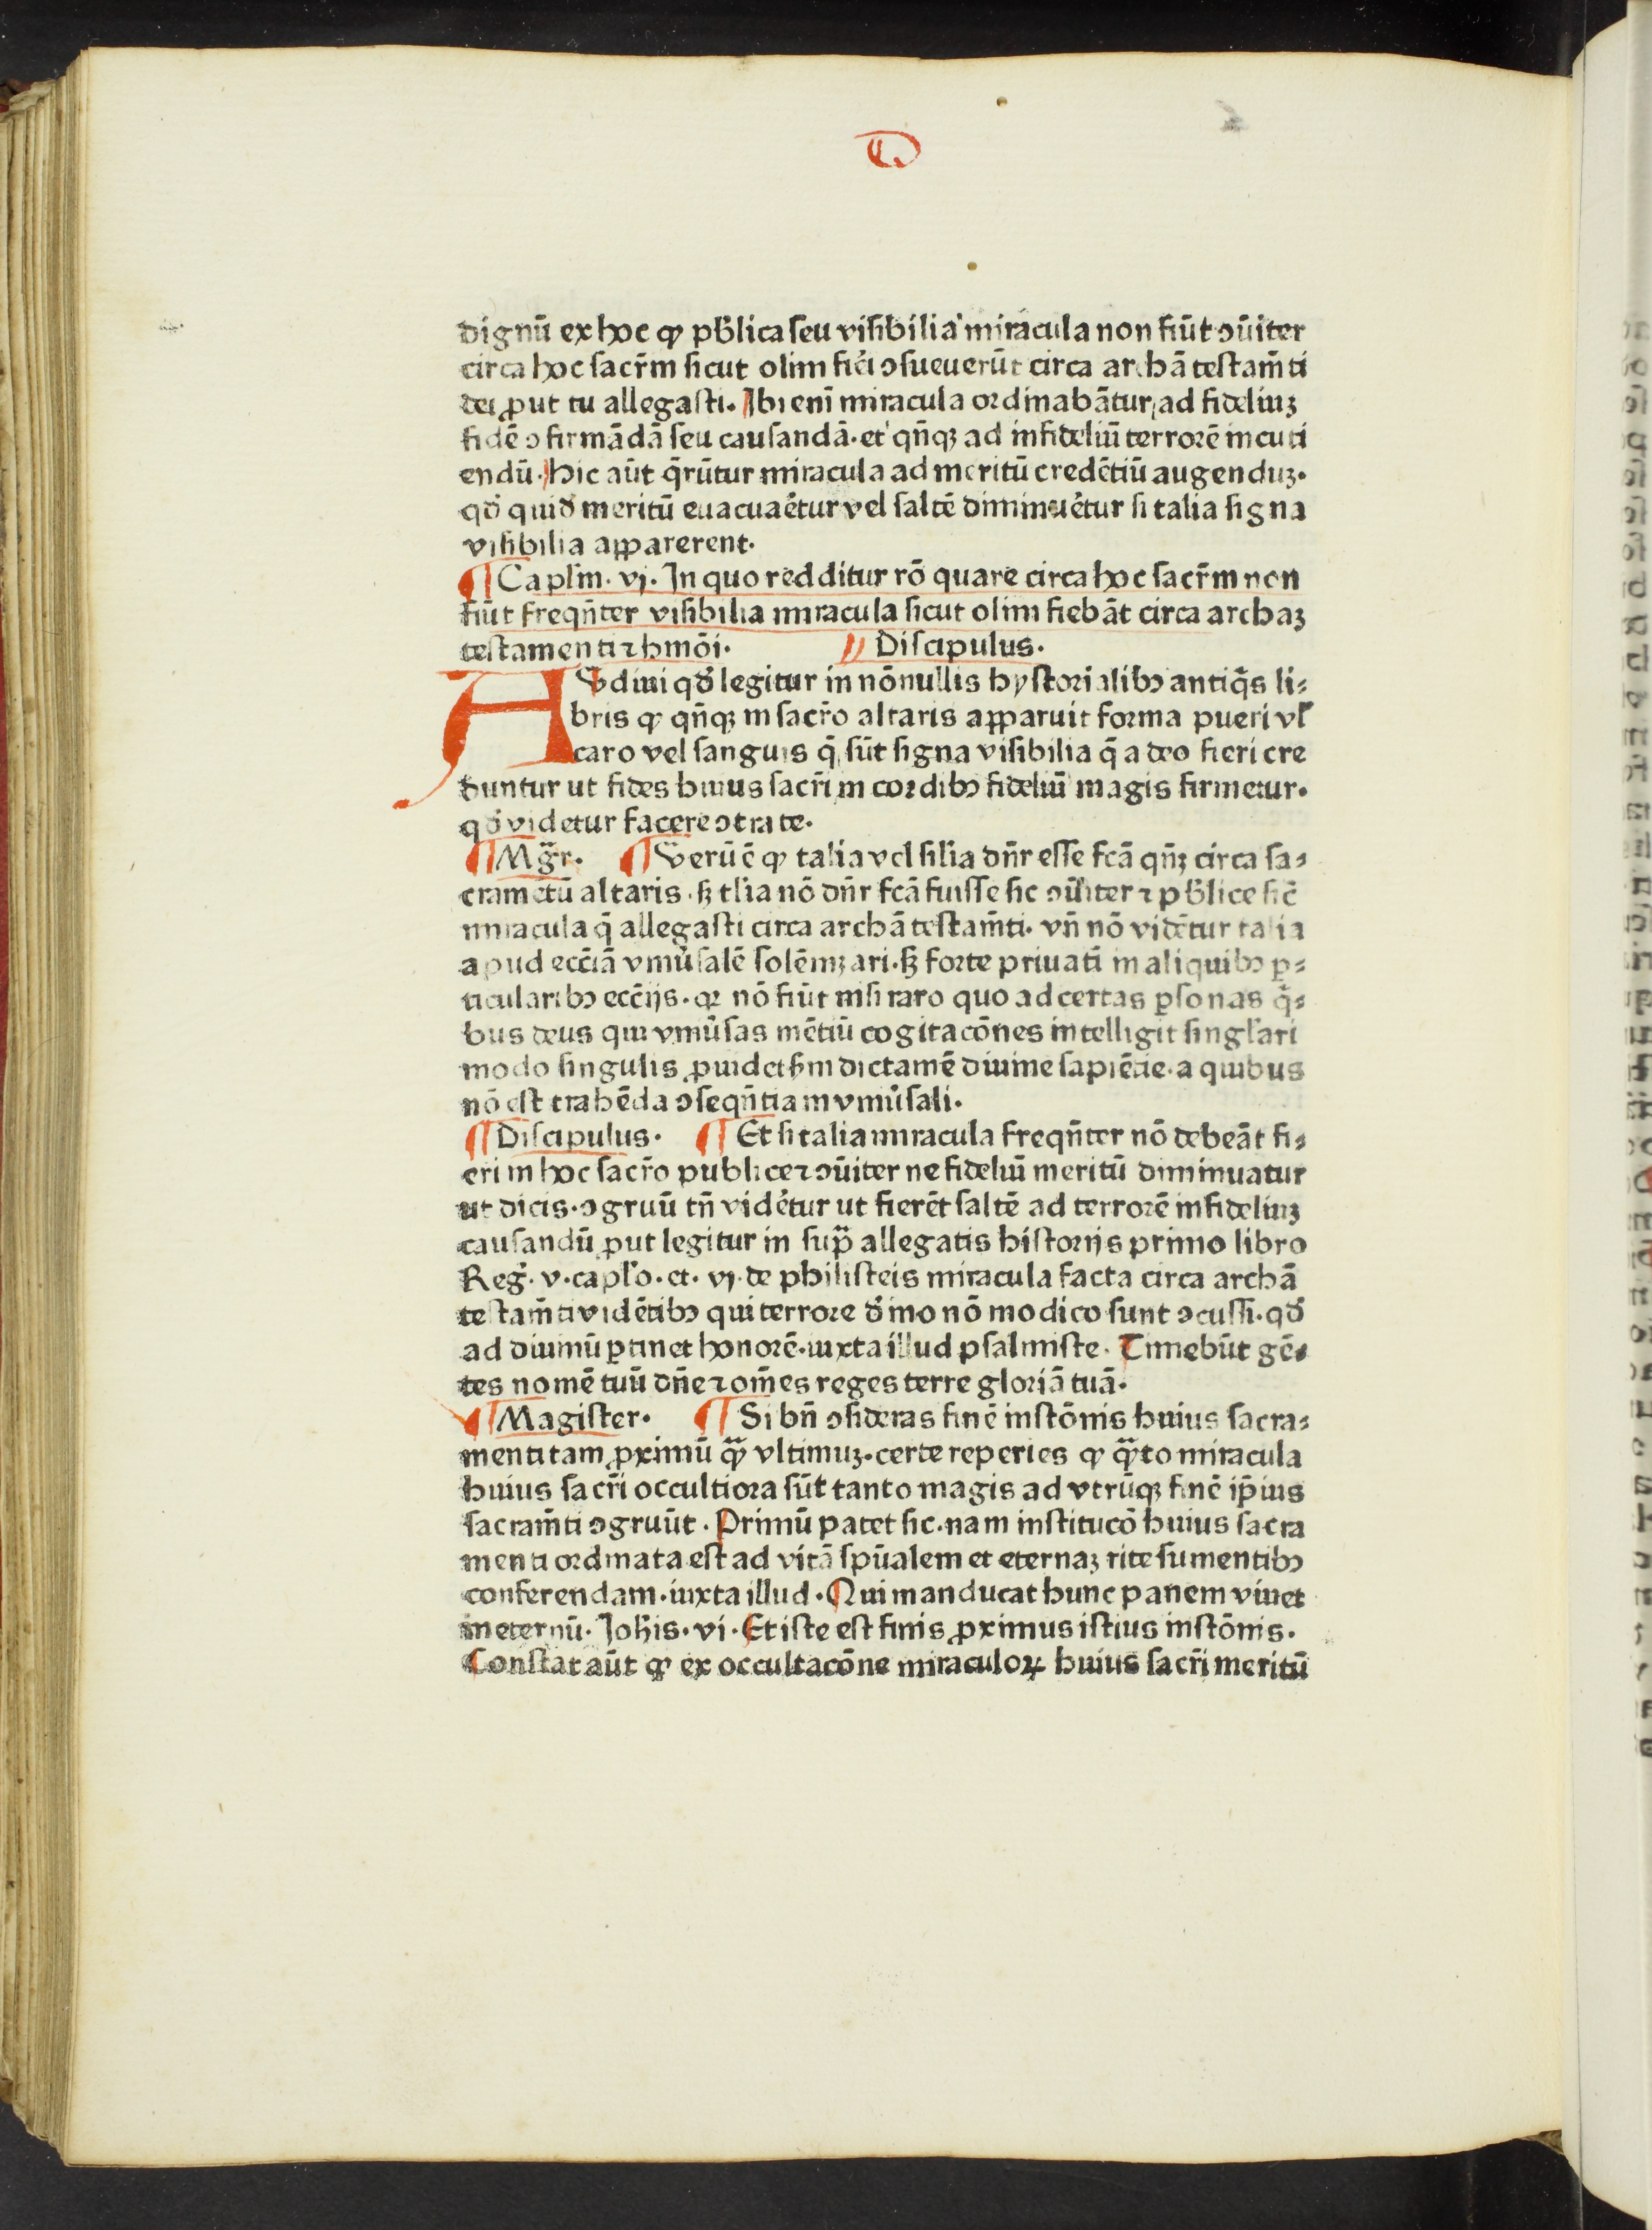 dignū ex hoc ꝙ pb̄lica ſeu viſibilia miracula non fiūt ɔūiter
circa hoc ſacr̄m ſicut olim fići ɔſueuerūt circa archā teſtam̄ti
dei ꝓut tu allegaſti. Ibi eni miracula ordinabātur ad fideliuꝫ
fidē ɔfirmādā ſeu cauſandā. et qn̄qꝫ ad infideliū terrorē incuti
endū. hic aūt q̄rūtur miracula ad meritū credētiū augenduꝫ.
qđ quid̄ meritū euacuaētur vel ſaltē diminuētur ſi talia ſigna
viſibilia apparerent.
¶ Capl̄m. vj. In quo redditur rō quare circa hoc ſacr̄m non
fiūt freqn̄ter viſibilia miracula ſicut olim fiebāt circa archaꝫ
teſtamenti ⁊ hmōi. Diſcipulus.
AVdiui qđ legitur in nōnullis hyſtorialibꝰ antiq̄s li⸗
bris ꝙ qn̄qꝫ in ſacr̄o altaris apparuit forma pueri vl̄
caro vel ſanguis q̄ ſūt ſigna viſibilia q̄ a deo fieri cre
duntur ut fides huius ſacr̄i in cordibꝰ fideliū magis firmetur.
qđ videtur facere ɔtra te.
¶ Mgr̄. ¶ Verū ē ꝙ talia vel ſilia dn̄r eſſe fcā qn̄ꝫ circa ſa⸗
cramētū altaris. ſꝫ tl̄ia nō dn̄r fcā fuiſſe ſic ɔūiter ⁊ pb̄lice ſic̄
miracula q̄ allegaſti circa archā teſtam̄ti. vn̄ nō vidētur talia
apud ecc̄iā vniūſalē ſolēniꝫari. ſꝫ forte priuati in aliquibꝰ ꝑ⸗
ticularibꝰ ecc̄ijs. qꝛ nō fiūt niſi raro quo ad certas ꝑſonas q̄⸗
bus deus qui vniūſas mētiū cogitacōnes intelligit ſingl̄ari
modo ſingulis ꝓuidet ſm̄ dictamē diuine ſapiētie. a quibus
nō eſt trahēda ɔſeqn̄tia in vniūſali.
¶ Diſcipulus. ¶ Et ſi talia miracula freqn̄ter nō debeāt fi⸗
eri in hoc ſacr̄o publice ⁊ ɔūiter ne fideliū meritū diminuatur
ut dicis. ɔgruū tn̄ vidētur ut fierēt ſaltē ad terrorē infideliuꝫ
cauſandū ꝓut legitur in ſup̄ allegatis hiſtorijs primo libro
Reḡ. v. capl̄o. et. vj. de philiſteis miracula facta circa archā
teſtam̄ti vidētibꝰ qui terrore d̄ino nō modico ſunt ɔcuſſi. qđ
ad diuinū ꝑtinet honorē. iuxta illud pſalmiſte. Timebūt gē⸗
tes nomē tuū dn̄e ⁊ om̄es reges terre gloriā tuā.
¶ Magiſter. ¶ Si bn̄ ɔſideras finē inſtōnis huius ſacra⸗
menti tam ꝓximū q̄ꝫ vltimuꝫ. certe reperies ꝙ q̄to miracula
huius ſacr̄i occultiora ſūt tanto magis ad vtrūqꝫ finē ip̄ius
ſacram̄ti ɔgruūt. Primū patet ſic. nam inſtitucō huius ſacra
menti ordinata eſt ad vitā ſpūalem et eternaꝫ rite ſumentibꝰ
conferendam. iuxta illud. Qui manducat hunc panem viuet
in eternū. Joh̄is. vi. Et iſte eſt finis ꝓximus iſtius inſtōnis.
Conſtat aūt ꝙ ex occultacōne miraculoꝝ huius ſacr̄i meritū